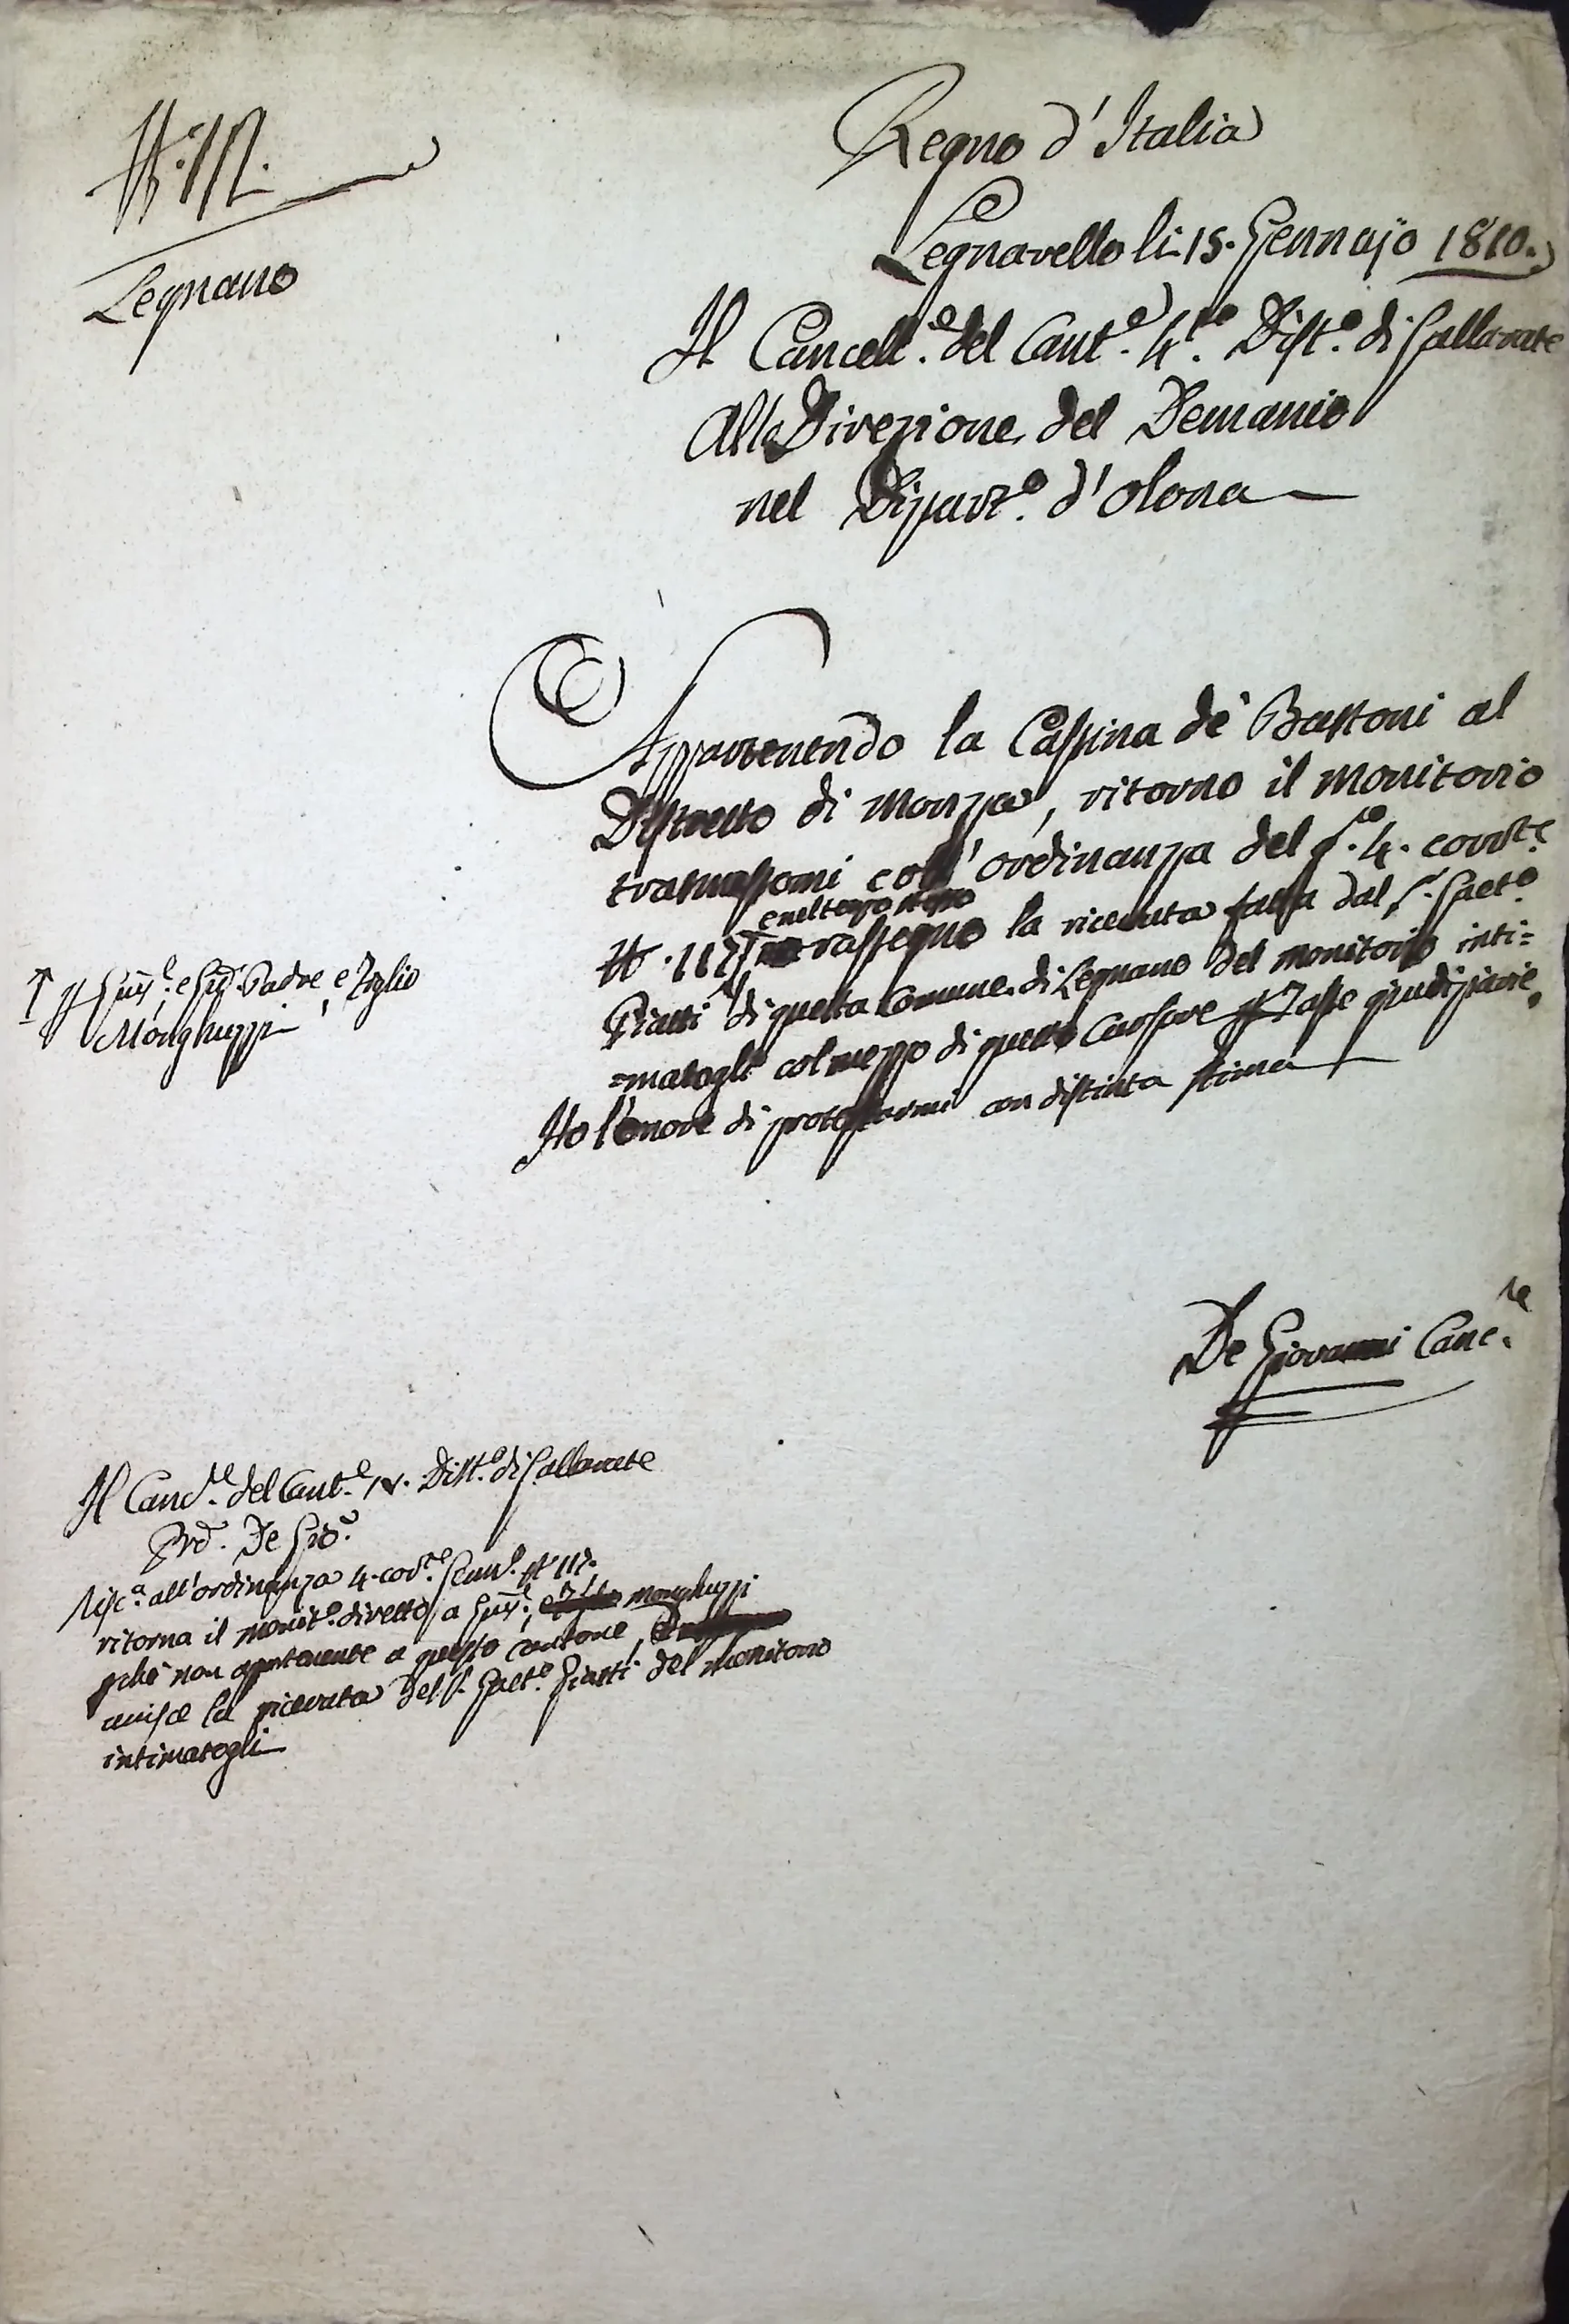 N.° 12.
Legnano
Regno d'Italia
Legnarello li 15. Gennajo 1810.
Il Cancell.e del Cant.e 4.to Dist.o di Gallarate
Alla Direzione del Demanio
nel Dipart.o d'Olona
Appartenendo la Cassina de' Bastoni al
Distretto di Monza, ritorno il monitorio
trasmessomi coll'ordinanza del g.o 4. corr.te
N.° 117
e nel tempo stesso
rassegno la ricevuta fatta dal S.r Gaet.o
Piatti di questa Comune di Legnano del monitorio inti=
=matogli col mezzo di questo Cursore p Tasse giudiziarie.
Ho l'onore di protestarmi con distinta stima
p Gius.e e Gio. Padre e Figlio
Monghuzzi
De Giovanni Canc.re
Il Canc.re del Cant.e IV. Dist.o di Gallarate
De Gio.
all'ordinanza 4. cor.te Genn.o N.° 117.
ritorna il monit.o diretto a Gius.e, e Figlio Monghuzzi
pchè non apartenente a questo cantone,
unisce la ricevuta del S. Gaet.o Piatti del monitorio
intimatogli